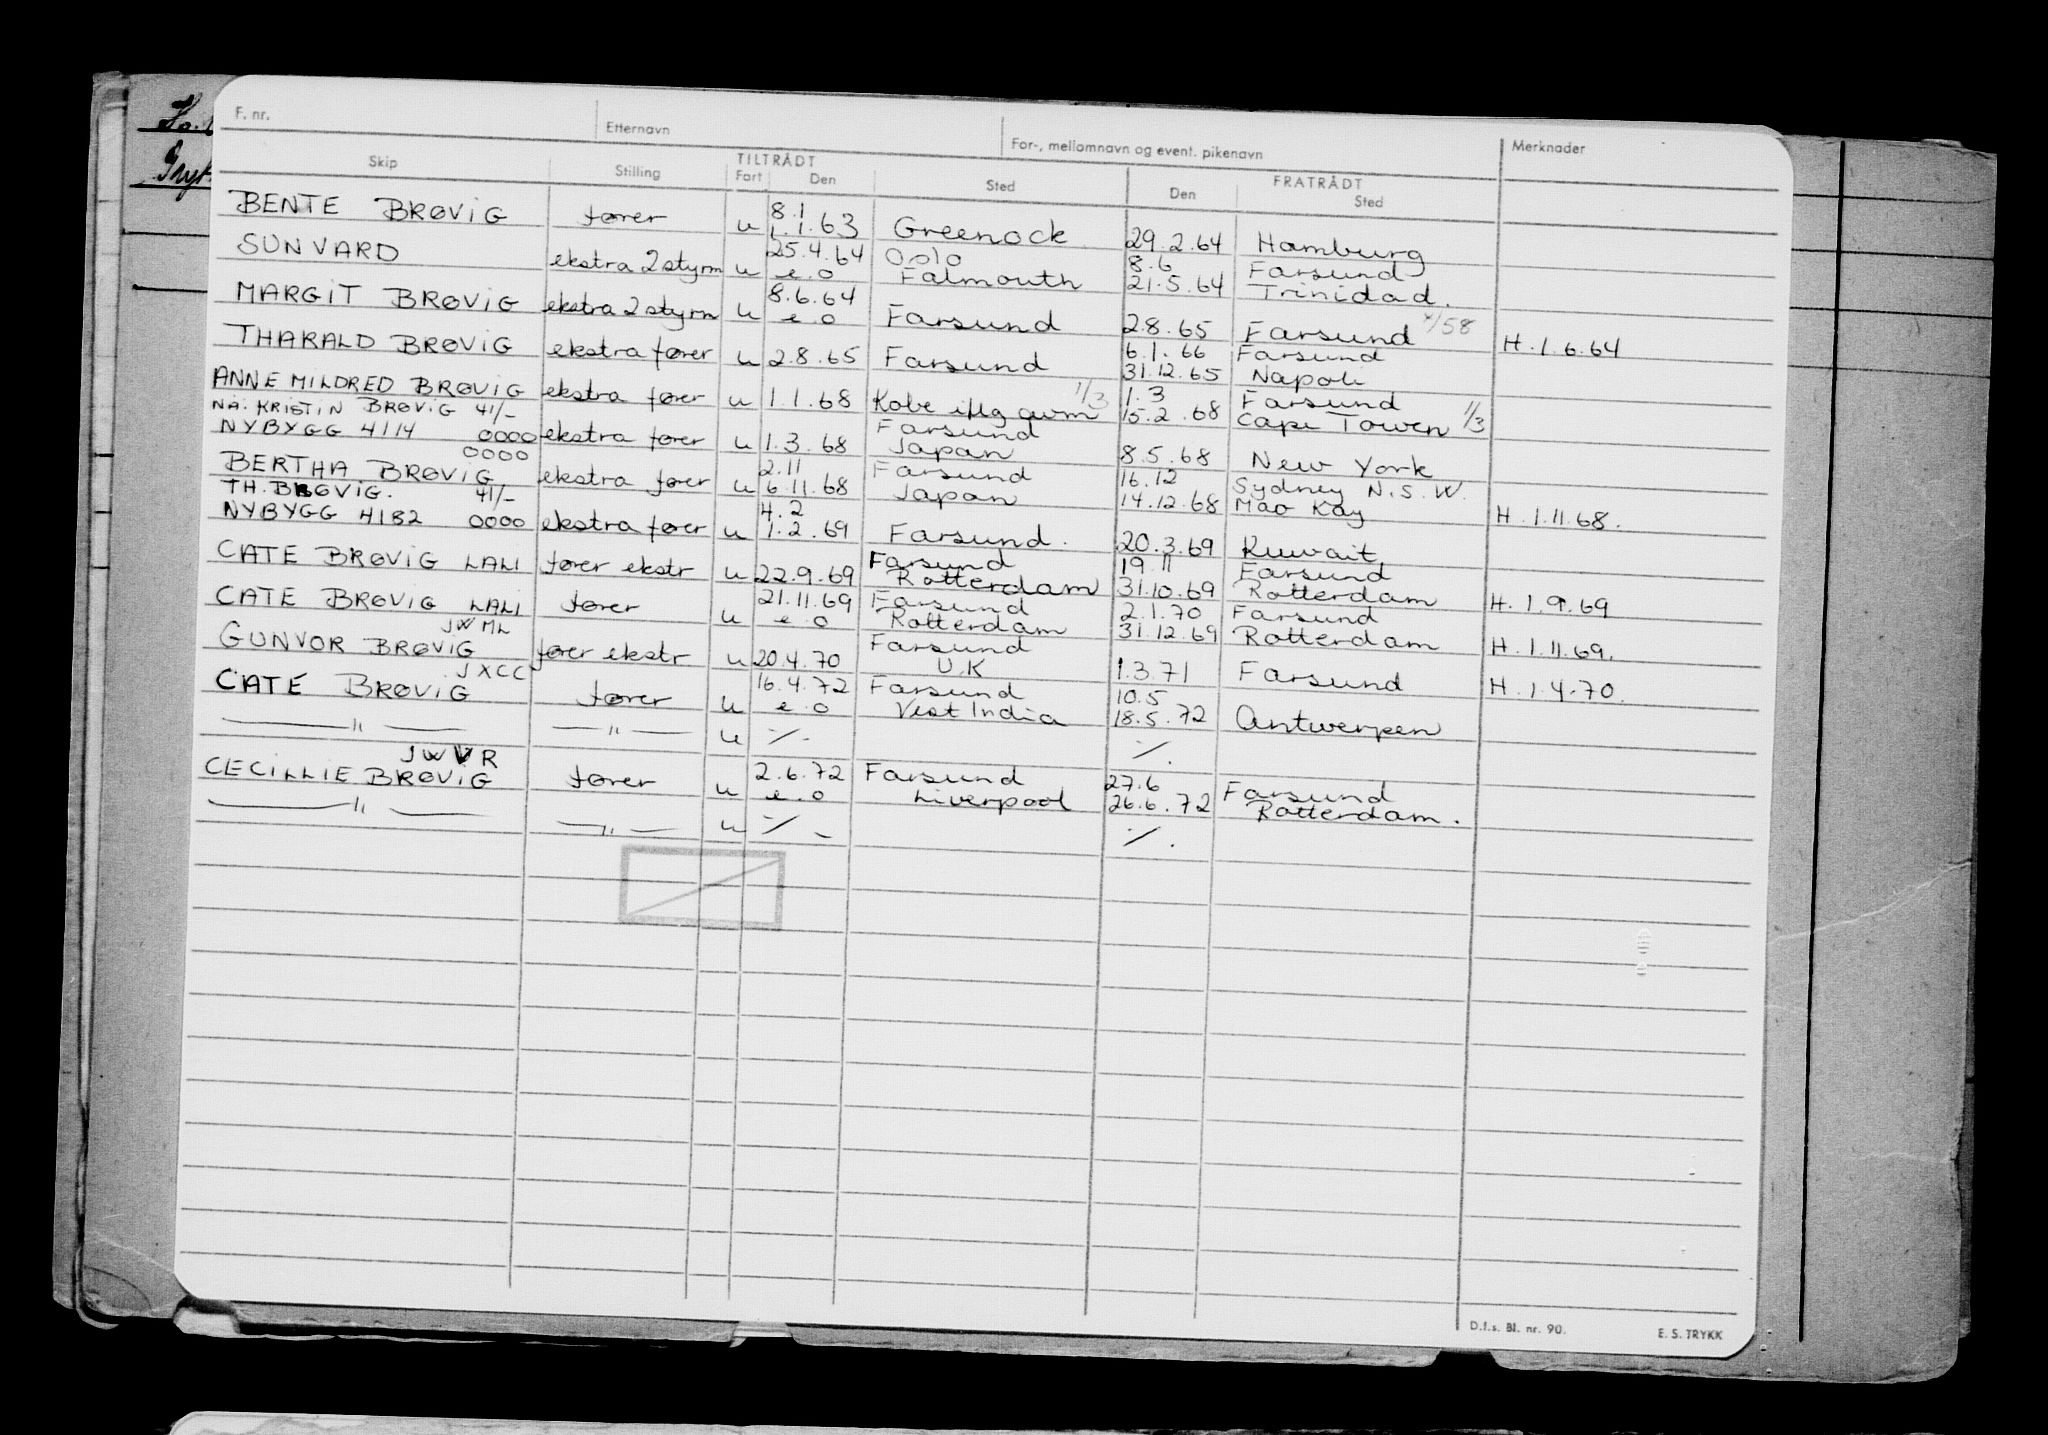 F. nr. Etternavn For-, mellomnavn og event. pikenavn Merknader
Skip Stilling TILTRÅDT Fart Den Sted FRATRÅDT Den Sted
BENTE BRØVIG fører u 8.1 1.1.63 Greenock 29.2.64 Hamburg
SUNVARD ekstra 2 styrm u 25.4.64 e.o Oslo Falmouth 8.6 21.5.64 Farsund Trinidad.
MARGIT BRØVIG ekstra 2 styrm u 8.6.64 e.o Farsund 2.8.65 Farsund /58 H.1.6.64
THARALD BRØVIG ekstra fører u 2.8.65 Farsund 6.1.66 31.12.65 Farsund Napoli
ANNE MILDRED BRØVIG ekstra fører u 1.1.68 Kobe iflg avm 1/3 1.3 15.2.68 Farsund Cape Towen 1/3
NÅ. KRISTIN BRØVIG 41/-
NYBYGG 4114 0000 ekstra fører u 1.3.68 Farsund Japan 8.5.68 New York
0000
BERTHA BRØVIG ekstra fører u 2.11 6.11.68 Farsund Japan 16.12 14.12.68 Sydney N.S.W. Mac Kay H.1.11.68.
TH. BRØVIG. 41/-
NYBYGG 4182 0000 ekstra fører u 4.2 1.2.69 Farsund. 20.3.69 Kuwait
CATE BRØVIG LALI fører ekstr u 22.9.69 Farsund Rotterdam 19.11 31.10.69 Farsund Rotterdam H.1.9.69
CATE BRØVIG LALI fører u 21.11.69 e.o Farsund Rotterdam 2.1.70 31.12.69 Farsund Rotterdam H.1.11.69.
JWML
GUNVOR BRØVIG fører ekstr u 20.4.70 Farsund U.K 1.3.71 Farsund H.1.4.70.
JXCC
CATE BRØVIG fører u 16.4.72 e.o Farsund Vest India 10.5 18.5.72 Antwerpen
—"— —"— u ./. ./.
JWVR
CECILLIE BRØVIG fører u 2.6.72 e.o Farsund Liverpool 27.6 26.6.72 Farsund Rotterdam.
—"— —"— u ./. ./.
D.f.s. Bl. nr. 90. E. S. TRYKK